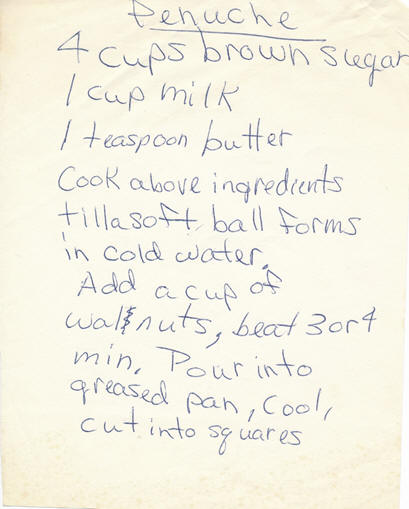 Penuche
4 cups brown sugar
1 cup milk
1 teaspoon butter
Cook above ingredients
till a soft ball forms
in cold water.
Add a cup of
walnuts, beat 3 or 4
min. Pour into
greased pan, cool,
cut into squares